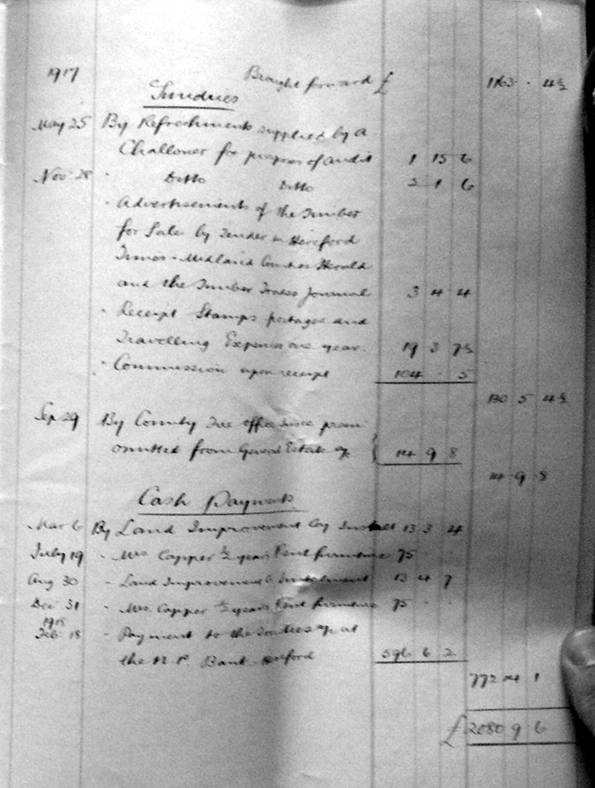 1917 Brought forward £ 1163 . 4½
Sundries
May 25 By Refreshments supplied by A
Challoner for purposes of audit 1 15 6
Nov 28 " Ditto Ditto 2 1 6
" Advertisements of the Timber
for Sale by Tender in Hereford
Times - Midland Counties Herald
and the Timber Trades Journal 3 4 4
" Receipt Stamps postages and
Travelling Expenses one year. 19 3 7½
" Commission upon receipt 104 . 5
130 5 4½
Sep 29 By County Fire Office Insce prem
omitted from General Estate a/c 14 9 8
14 9 8
Cash Payments
Mar 6 By Land Improvement Coy Instalt 13 3 4
July 19 " Mrs. Capper ½ years Rent furniture 75
Aug 30 " Land Improvement Co Instalment 13 4 7
Dec 31 " Mrs. Capper ½ years Rent furniture 75 . .
1918
Feb. 18 " Payment to the Trustees a/c at
the Bank 596 6 2
772 14 1
£2080 9 6